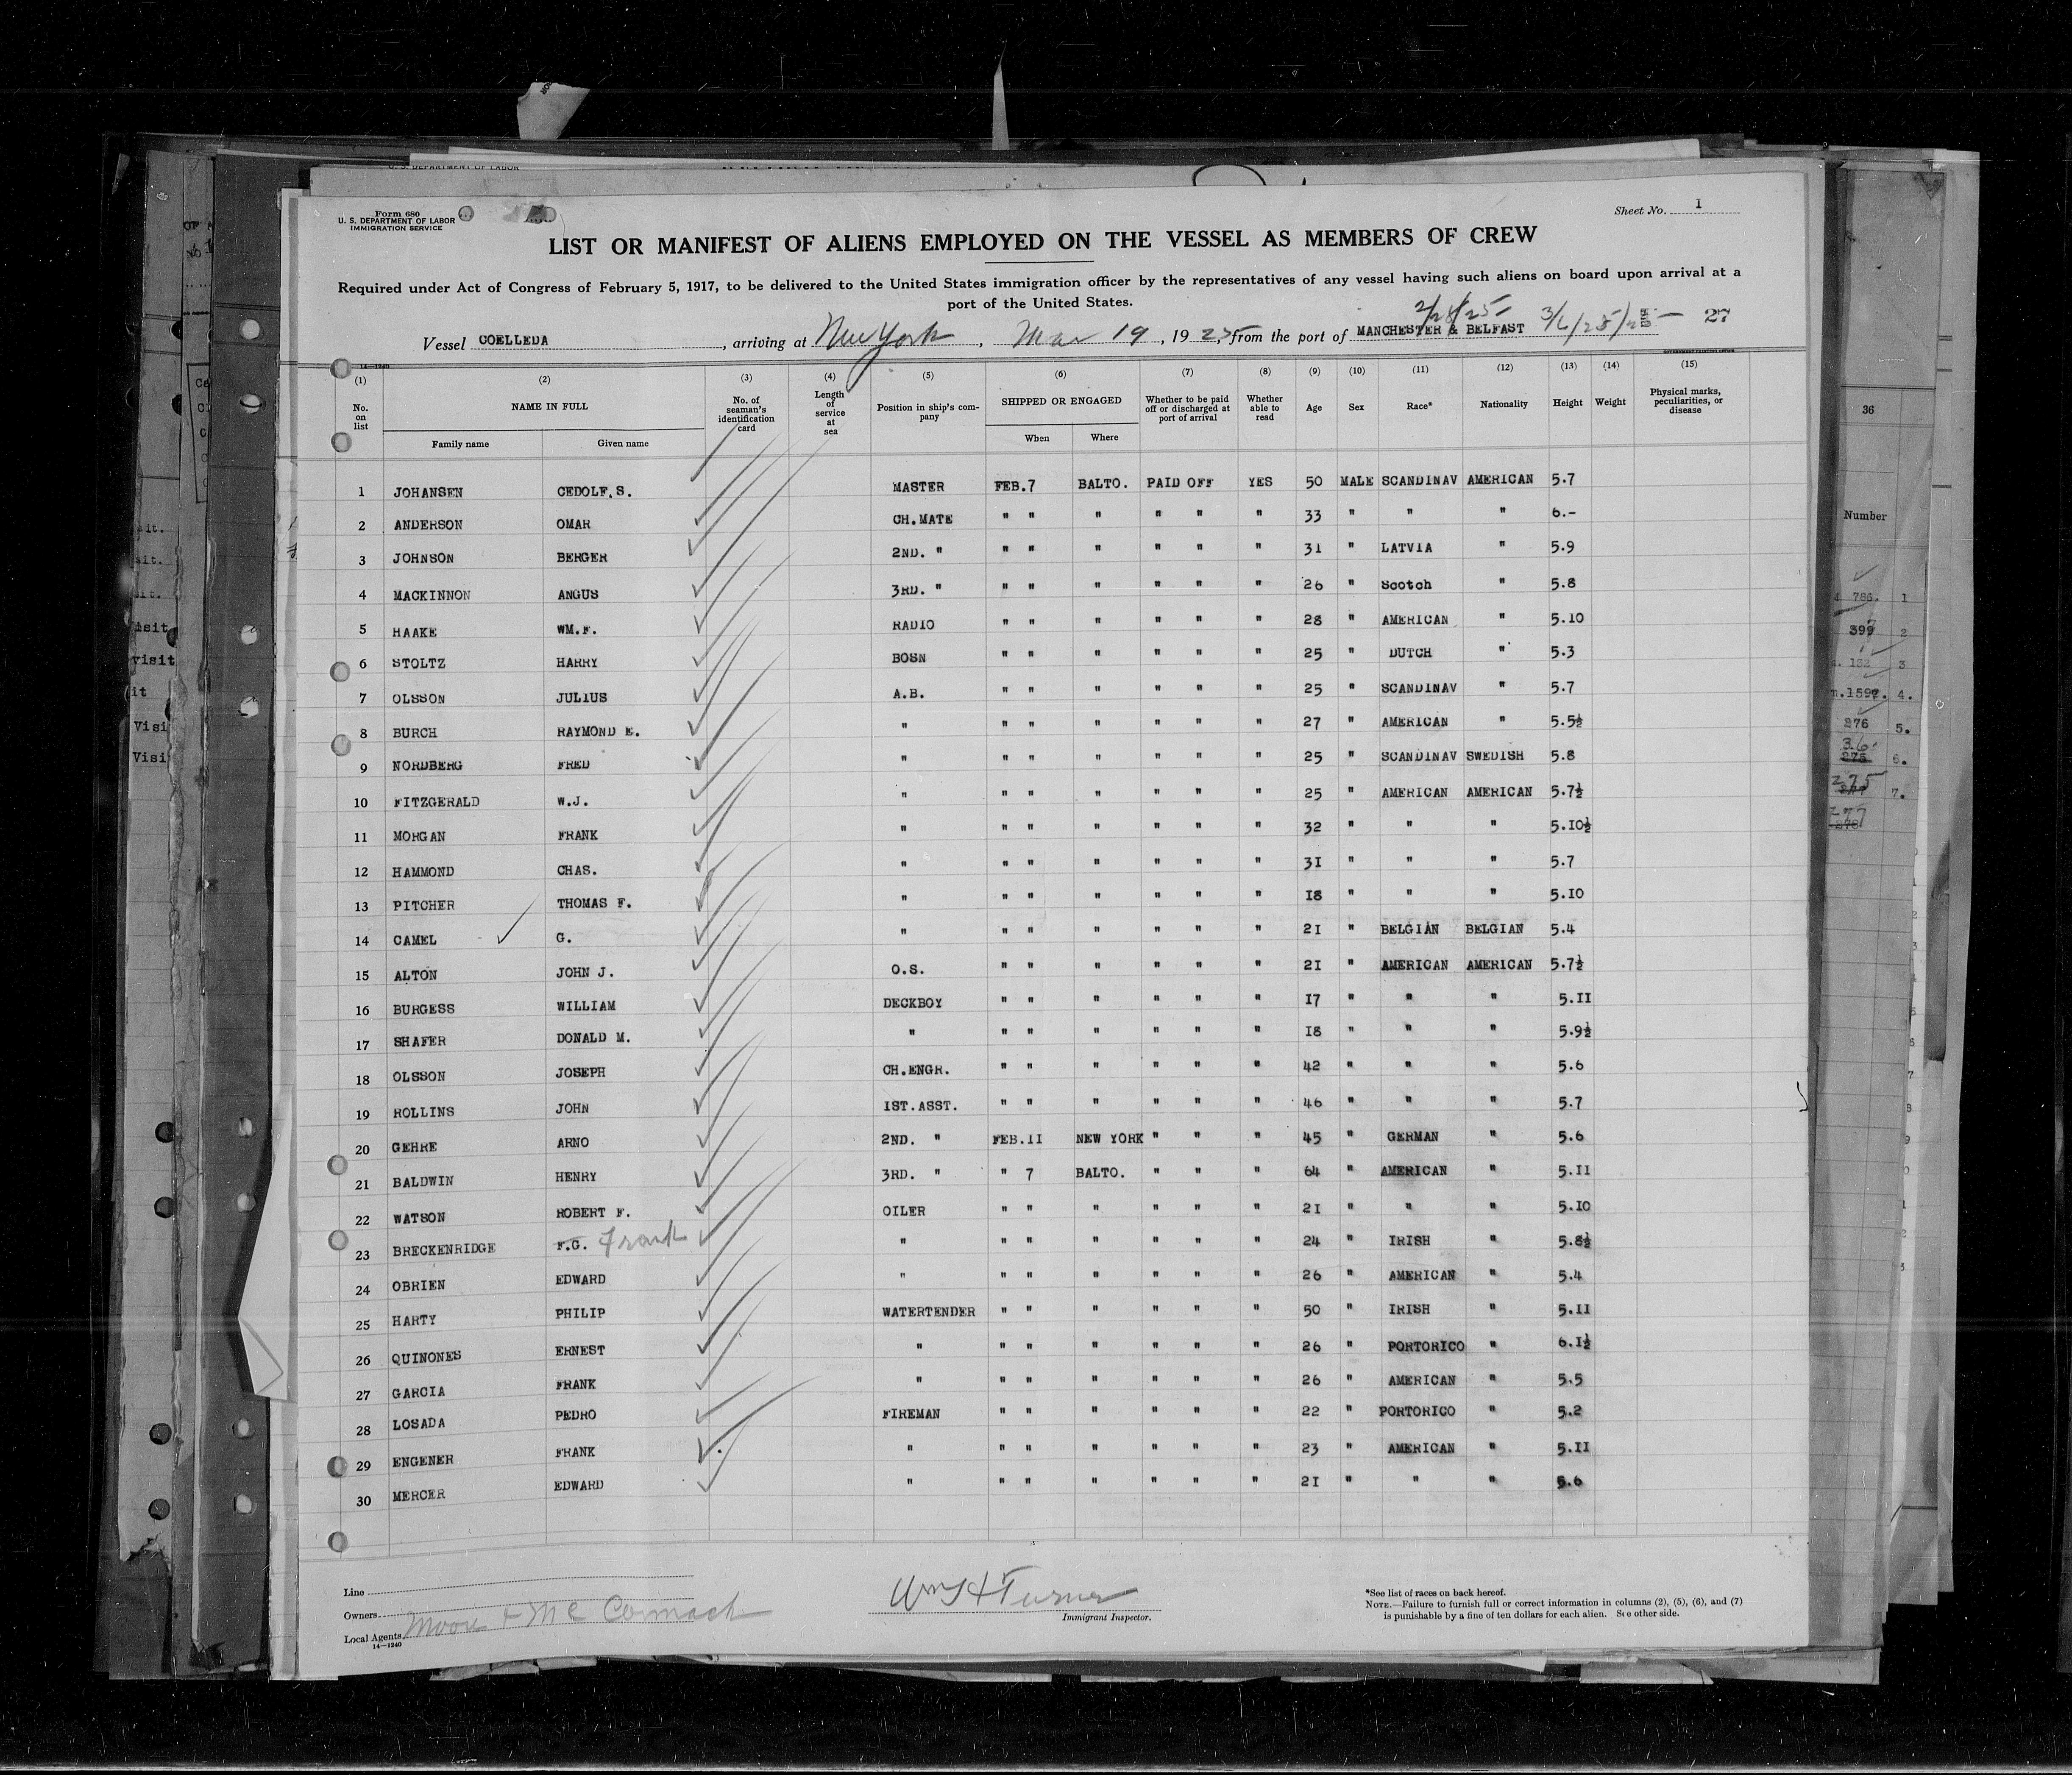 U. S. DEPARTMENT OF LABOR
Form 680
U. S. DEPARTMENT OF LABOR
IMMIGRATION SERVICE
Sheet No. 1
LIST OR MANIFEST OF ALIENS EMPLOYED ON THE VESSEL AS MEMBERS OF CREW
Required under Act of Congress of February 5, 1917, to be delivered to the United States immigration officer by the representatives of any vessel having such aliens on board upon arrival at a
port of the United States.
2/28/25
Vessel COELLEDA, arriving at New York, Mar 19, 1925, from the port of MANCHESTER & BELFAST 3/6/25 27
14—1240
(1) (2) (3) (4) (5) (6) (7) (8) (9) (10) (11) (12) (13) (14) (15)
No. on list NAME IN FULL No. of seaman's identification card Length of service at sea Position in ship's company SHIPPED OR ENGAGED Whether to be paid off or discharged at port of arrival Whether able to read Age Sex Race* Nationality Height Weight Physical marks, peculiarities, or disease
Family name Given name When Where
1 JOHANSEN CEDOLF.S. MASTER FEB.7 BALTO. PAID OFF YES 50 MALE SCANDINAV AMERICAN 5.7
2 ANDERSON OMAR CH.MATE " " " " " " 33 " " " 6.-
3 JOHNSON BERGER 2ND. " " " " " " " 31 " LATVIA " 5.9
4 MACKINNON ANGUS 3RD. " " " " " " " 26 " Scotch " 5.8
5 HAAKE WM.F. RADIO " " " " " " 28 " AMERICAN " 5.10
6 STOLTZ HARRY BOSN " " " " " " 25 " DUTCH " 5.3
7 OLSSON JULIUS A.B. " " " " " " 25 " SCANDINAV " 5.7
8 BURCH RAYMOND E. " " " " " " " 27 " AMERICAN " 5.5½
9 NORDBERG FRED " " " " " " " 25 " SCANDINAV SWEDISH 5.8
10 FITZGERALD W.J. " " " " " " " 25 " AMERICAN AMERICAN 5.7½
11 MORGAN FRANK " " " " " " " 32 " " " 5.10½
12 HAMMOND CHAS. " " " " " " " 31 " " " 5.7
13 PITCHER THOMAS F. " " " " " " " 18 " " " 5.10
14 CAMEL G. " " " " " " " 21 " BELGIAN BELGIAN 5.4
15 ALTON JOHN J. O.S. " " " " " " 21 " AMERICAN AMERICAN 5.7½
16 BURGESS WILLIAM DECKBOY " " " " " " 17 " " " 5.11
17 SHAFER DONALD M. " " " " " " " 18 " " " 5.9½
18 OLSSON JOSEPH CH.ENGR. " " " " " " 42 " " " 5.6
19 ROLLINS JOHN 1ST.ASST. " " " " " " 46 " " " 5.7
20 GEHRE ARNO 2ND. " FEB.11 NEW YORK " " " 45 " GERMAN " 5.6
21 BALDWIN HENRY 3RD. " " 7 BALTO. " " " 64 " AMERICAN " 5.11
22 WATSON ROBERT F. OILER " " " " " " 21 " " " 5.10
23 BRECKENRIDGE F.G. Frank " " " " " " " 24 " IRISH " 5.8½
24 OBRIEN EDWARD " " " " " " " 26 " AMERICAN " 5.4
25 HARTY PHILIP WATERTENDER " " " " " " 50 " IRISH " 5.11
26 QUINONES ERNEST " " " " " " " 26 " PORTORICO " 6.1½
27 GARCIA FRANK " " " " " " " 26 " AMERICAN " 5.5
28 LOSADA PEDRO FIREMAN " " " " " " 22 " PORTORICO " 5.2
29 ENGENER FRANK " " " " " " " 23 " AMERICAN " 5.11
30 MERCER EDWARD " " " " " " " 21 " " " 5.6
Line
Owners
Local Agents Moore & McCormack
14—1240
Wm H Turner
Immigrant Inspector.
*See list of races on back hereof.
NOTE.—Failure to furnish full or correct information in columns (2), (5), (6), and (7)
is punishable by a fine of ten dollars for each alien. See other side.
36
Number